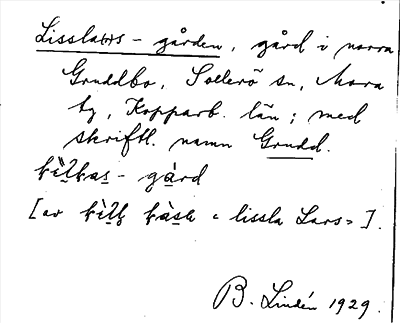 Lisslars-gården, gård i norra
Gruddbo, Sollerö sn, Mora
tg, Kopparb. län; med
skriftl. namn Grudd.
- gård
[av « lissla Lars» ].
B. Lindén 1929.